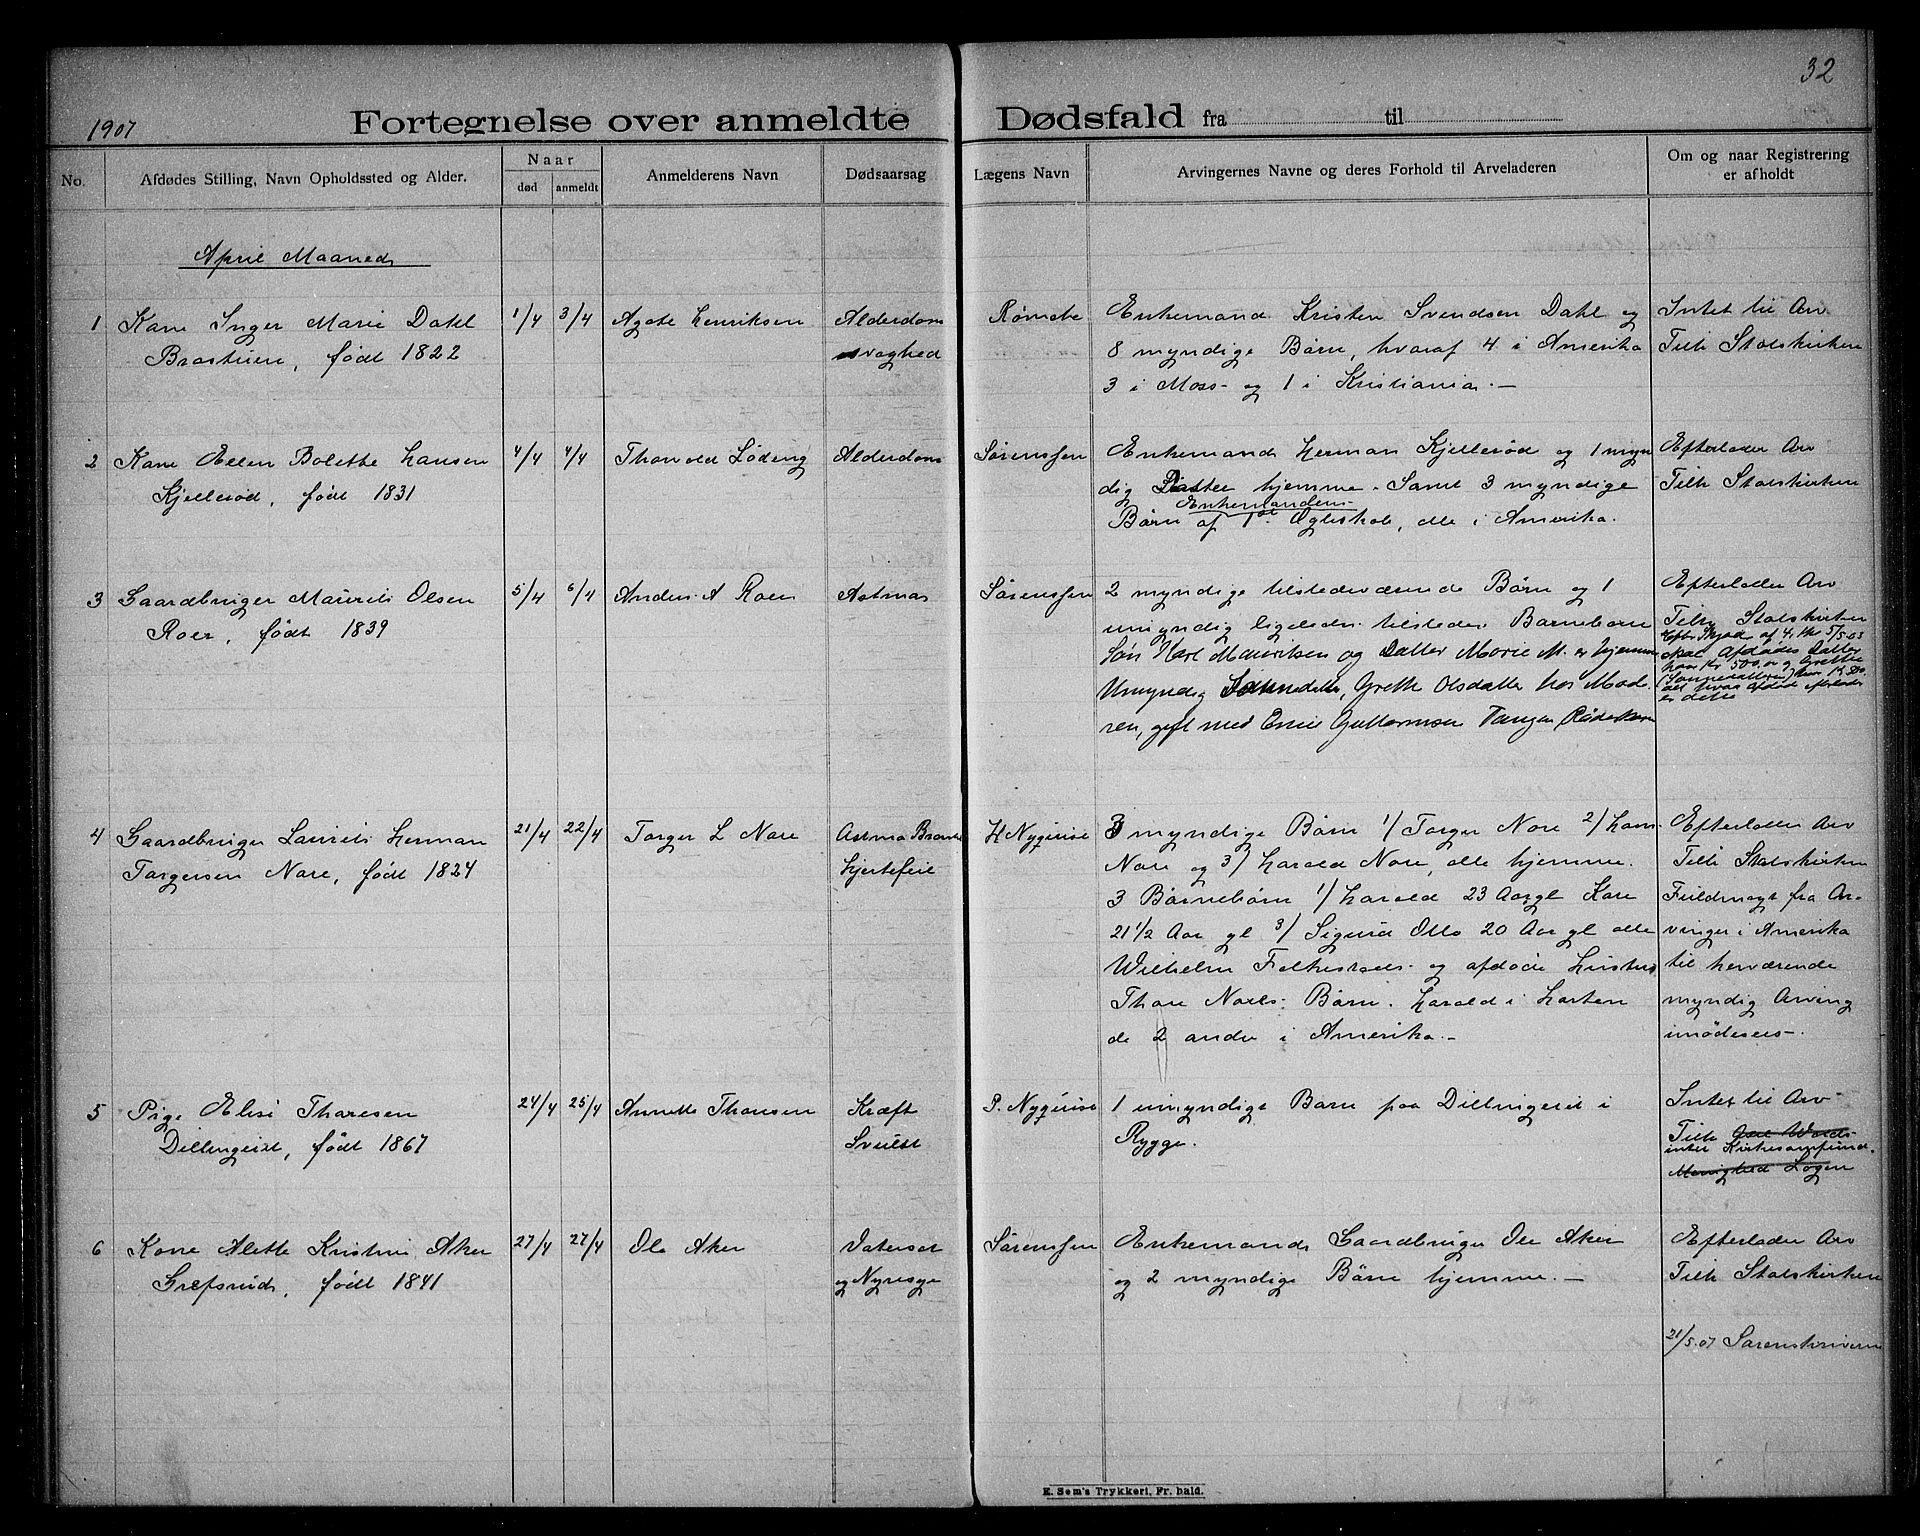 32
1907
Fortegnelse over anmeldte Dødsfald fra til
No.
Afdødes Stilling, Navn Opholdssted og Alder.
Naar
død
anmeldt
Anmelderens Navn
Dødsaarsag
Lægens Navn
Arvingernes Navne og deres Forhold til Arveladeren
Om og naar Registrering
er afholdt
April Maaned
1
Kone Inger Marie Dahl
Brastuen, født 1822
1/4
3/4
Agate Henriksen
Alderdoms
svaghed
Enkemand Kristen Svendsen Dahl og
8 myndige Børn, hvoraf 4 i Amerika
3 i Moss og 1 i Kristiania.—
Intet til Arv
Tilh Statskirken
2
Kone Ellen Bolette Hansen
Kjellerød, født 1831
4/4
4/4
Thorvald Løding
Alderdoms
Sørenssen
Enkemand Herman Kjellerød og 1 myn
dig Datter hjemme. Samt 3 myndige
Enkemandens
Børn af 1ste Ægteskab, alle i Amerika.
Efterlader Arv
Tilh Statskirken
3
Gaardbruger Mauritz Olsen
Roer, født 1839
5/4
6/4
Anders A Roer
Astma
Sørenssen
2 myndige tilstedeværende Børn og 1
umyndig ligeledes tilstede Barnebarn
Søn Karl Mauritsen og Datter Marie M. er hjemme
Umyndig Sønnedatter, Grethe Olsdatter hos Mod
ren, gift med Emil Guttormsen Tangen
Efterlader Arv
Tilh Statskirken
Efter Skjøde af 4, thl 5/5.03
skal Afdødes Datter
har Kr 500,00 og Grethe
(Sønnedatter)
alt hvad afdød efterlader
er dette
4
Gaardbruger Laurits Herman
Torgersen Nore, født 1824
21/4
22/4
Torger L Nore
Astma
Hjertefeil
H Nyquist
3 myndige Børn 1/ Torger Nore 2/ Hans
Nore og 3/ Harald Nore, alle hjemme.
3 Børnebørn 1/ Harald 23 Aar gl Kare
21 1/2 Aar gl 3/ Sigurd Otto 20 Aar gl alle
Wilhelm Folkestads og afdøde Hustru
Thora Nores Børn. Harald i Horten
de 2 andre i Amerika.—
Efterlader Arv
Tilh Statskirken
Fuldmagt fra Ar-
vinger i Amerika
til herværende
myndig Arving
imødesees.
5
Pige Elise Thoresen
Dillingøist, født 1867
24/4
25/4
Annette Thoresen
Kræft
Svulst
P. Nyquist
1 umyndige Barn paa Dillingøist i
Rygge.
Intet til Arv
Tilh
intet Kirkesamfund.
Menighed Logen
6
Kone Alette Kristine Aker
Grefsrud, født 1841
27/4
27/4
Ole Aker
Vatersot
og Nyresyge
Sørenssen
Enkemand Gaardbruger Ole Aker
og 2 myndige Børn hjemme.—
Efterlader Arv
Tilh Statskirken
21/5.07 Sorenskriveren
E. Sem's Trykkeri, Fr. hald.